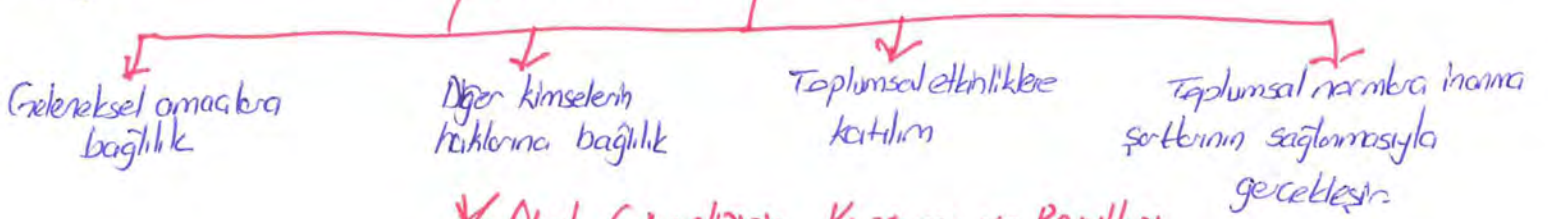 Geleneksel amaçlara
bağlılık
Diğer kimselerin
haklarına bağlılık
Toplumsal etkinliklere
katılım
Toplumsal normlara inanma
şartlarının sağlanmasıyla
gerçekleşir.